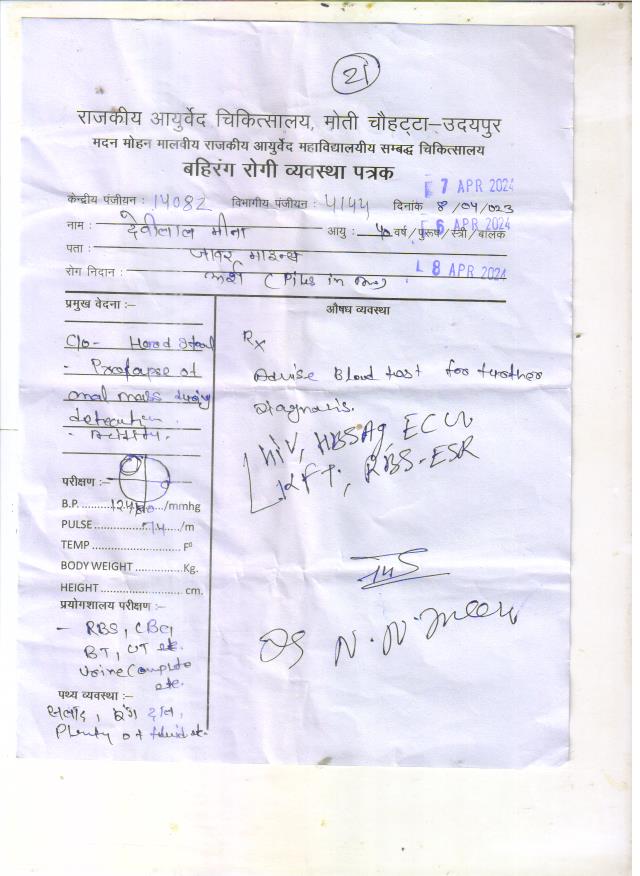 21
राजकीय आयुर्वेद चिकित्सालय, मोती चौहट्टा–उदयपुर
मदन मोहन मालवीय राजकीय आयुर्वेद महाविद्यालयीय सम्बद्ध चिकित्सालय
बहिरंग रोगी व्यवस्था पत्रक
7 APR 2024
केन्द्रीय पंजीयन : 14082 विभागीय पंजीयन : 4144 दिनांक 8/04/023
6 APR 2024
नाम : देवीलाल मीना आयु : 40 वर्ष / पुरूष / स्त्री / बालक
पता : जावर माइन्स
8 APR 2024
रोग निदान : अर्श (Piles in
प्रमुख वेदना :–
औषध व्यवस्था
C/o- Hard Stool
- Prolapse of
anal mass during
defecation
Rx
Advise Blood test for further
Diagnosis.
HIV, HBSAg, ECG,
KFT, RBS-ESR
परीक्षण :–
B.P. /mmhg
PULSE 74 /m
TEMP F⁰
BODY WEIGHT Kg.
HEIGHT cm.
प्रयोगशालय परीक्षण :–
– RBS, CBC,
BT, CT etc.
Urine Complete
etc.
Dr N.N. Meena
पथ्य व्यवस्था :–
सलाद, मूंग दाल,
Plenty of fluid etc.